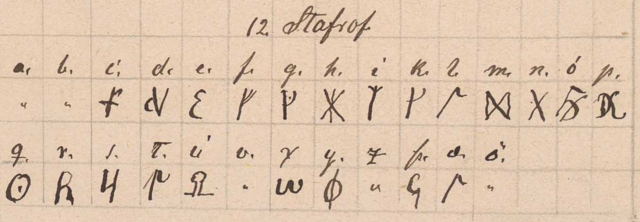 12. Stafrof
a. b. c. d. e. f. g. h. i k. l. m. n. ó p.
" " Ɛ ᚠ ᚼ ᛉ ᚴ ᛚ ᛞ X
q. r. s. t. ú v. x y. z þ. æ. ö.
ʘ R Ч Ω " ω ϕ " ᛚ "